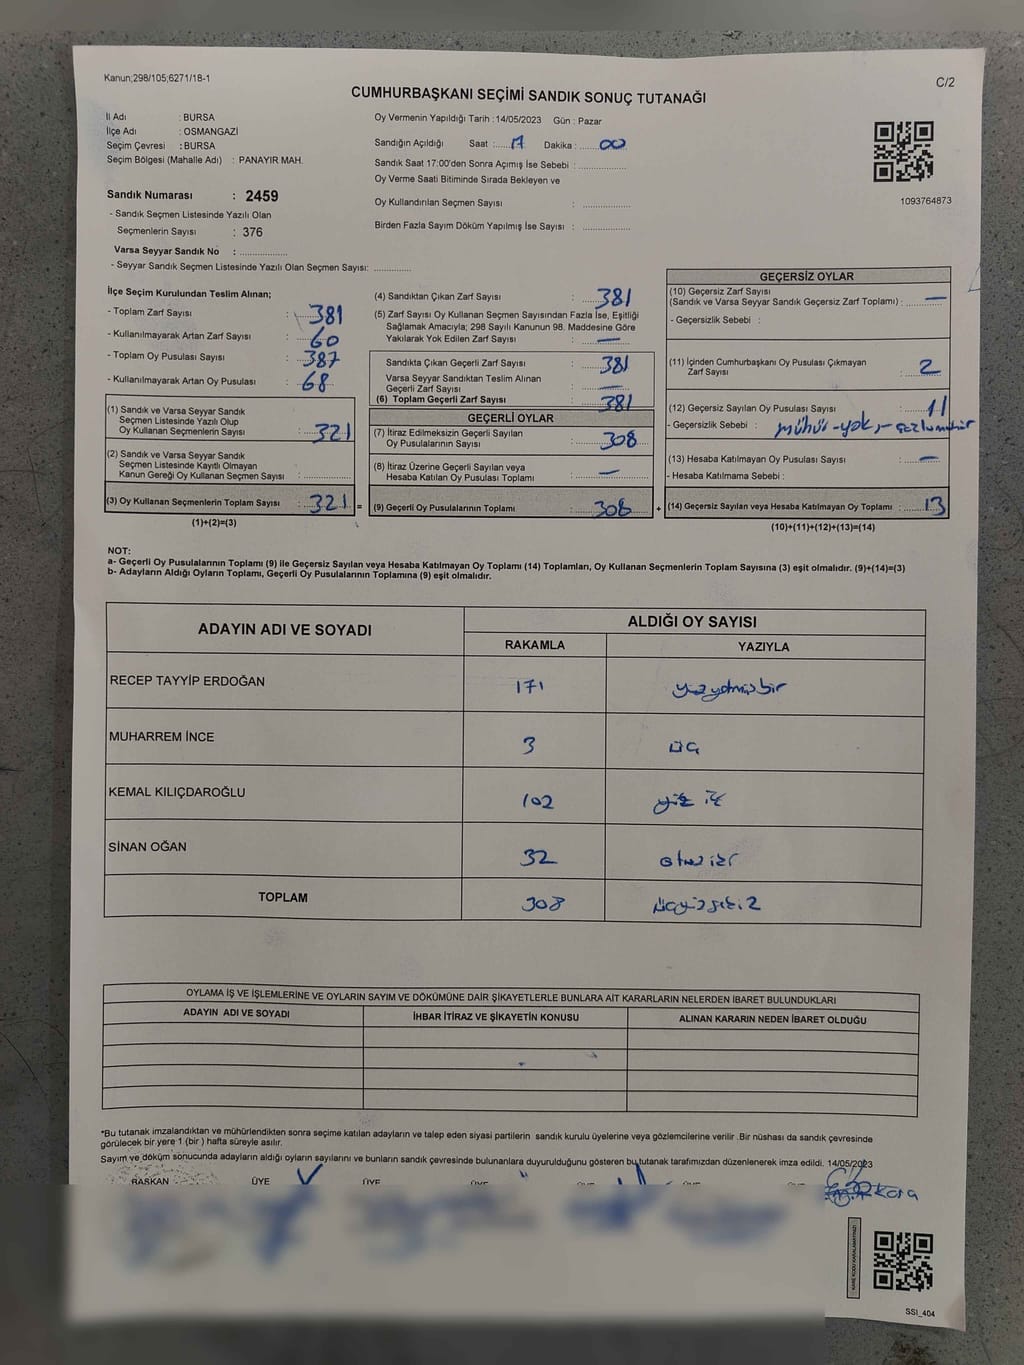 Kanun;298/105;6271/18-1
C/2
CUMHURBAŞKANI SEÇİMİ SANDIK SONUÇ TUTANAĞI
İl Adı : BURSA
İlçe Adı : OSMANGAZİ
Seçim Çevresi : BURSA
Seçim Bölgesi (Mahalle Adı) : PANAYIR MAH.
Sandık Numarası : 2459
- Sandık Seçmen Listesinde Yazılı Olan
Seçmenlerin Sayısı : 376
Varsa Seyyar Sandık No : ................
- Seyyar Sandık Seçmen Listesinde Yazılı Olan Seçmen Sayısı: ............
Oy Vermenin Yapıldığı Tarih : 14/05/2023 Gün : Pazar
Sandığın Açıldığı Saat : 17 Dakika : 00
Sandık Saat 17:00'den Sonra Açımış İse Sebebi : ................
Oy Verme Saati Bitiminde Sırada Bekleyen ve
Oy Kullandırılan Seçmen Sayısı : ................
Birden Fazla Sayım Döküm Yapılmış İse Sayısı : ................
1093764873
İlçe Seçim Kurulundan Teslim Alınan;
- Toplam Zarf Sayısı : 381
- Kullanılmayarak Artan Zarf Sayısı : 60
- Toplam Oy Pusulası Sayısı : 387
- Kullanılmayarak Artan Oy Pusulası : 68
(1) Sandık ve Varsa Seyyar Sandık
Seçmen Listesinde Yazılı Olup
Oy Kullanan Seçmenlerin Sayısı : 321
(2) Sandık ve Varsa Seyyar Sandık
Seçmen Listesinde Kayıtlı Olmayan
Kanun Gereği Oy Kullanan Seçmen Sayısı : ................
(3) Oy Kullanan Seçmenlerin Toplam Sayısı : 321 =
(1)+(2)=(3)
(4) Sandıktan Çıkan Zarf Sayısı : 381
(5) Zarf Sayısı Oy Kullanan Seçmen Sayısından Fazla İse, Eşitliği
Sağlamak Amacıyla; 298 Sayılı Kanunun 98. Maddesine Göre
Yakılarak Yok Edilen Zarf Sayısı : —
Sandıkta Çıkan Geçerli Zarf Sayısı : 381
Varsa Seyyar Sandıktan Teslim Alınan
Geçerli Zarf Sayısı : —
(6) Toplam Geçerli Zarf Sayısı : 381
GEÇERLİ OYLAR
(7) İtiraz Edilmeksizin Geçerli Sayılan
Oy Pusulalarının Sayısı : 308
(8) İtiraz Üzerine Geçerli Sayılan veya
Hesaba Katılan Oy Pusulası Toplamı : —
(9) Geçerli Oy Pusulalarının Toplamı : 308 +
GEÇERSİZ OYLAR
(10) Geçersiz Zarf Sayısı
(Sandık ve Varsa Seyyar Sandık Geçersiz Zarf Toplamı) : —
- Geçersizlik Sebebi :
(11) İçinden Cumhurbaşkanı Oy Pusulası Çıkmayan
Zarf Sayısı : 2
(12) Geçersiz Sayılan Oy Pusulası Sayısı : 11
- Geçersizlik Sebebi : mühür-yok,
(13) Hesaba Katılmayan Oy Pusulası Sayısı : —
- Hesaba Katılmama Sebebi :
(14) Geçersiz Sayılan veya Hesaba Katılmayan Oy Toplamı : 13
(10)+(11)+(12)+(13)=(14)
NOT:
a- Geçerli Oy Pusulalarının Toplamı (9) ile Geçersiz Sayılan veya Hesaba Katılmayan Oy Toplamı (14) Toplamları, Oy Kullanan Seçmenlerin Toplam Sayısına (3) eşit olmalıdır. (9)+(14)=(3)
b- Adayların Aldığı Oyların Toplamı, Geçerli Oy Pusulalarının Toplamına (9) eşit olmalıdır.
ADAYIN ADI VE SOYADI ALDIĞI OY SAYISI
RAKAMLA YAZIYLA
RECEP TAYYİP ERDOĞAN 171 yüzyetmişbir
MUHARREM İNCE 3 üç
KEMAL KILIÇDAROĞLU 102 yüz iki
SİNAN OĞAN 32 otuz iki
TOPLAM 308 üçyüzsekiz
OYLAMA İŞ VE İŞLEMLERİNE VE OYLARIN SAYIM VE DÖKÜMÜNE DAİR ŞİKAYETLERLE BUNLARA AİT KARARLARIN NELERDEN İBARET BULUNDUKLARI
ADAYIN ADI VE SOYADI İHBAR İTİRAZ VE ŞİKAYETİN KONUSU ALINAN KARARIN NEDEN İBARET OLDUĞU
*Bu tutanak imzalandıktan ve mühürlendikten sonra seçime katılan adayların ve talep eden siyasi partilerin sandık kurulu üyelerine veya gözlemcilerine verilir .Bir nüshası da sandık çevresinde
görülecek bir yere 1 (bir ) hafta süreyle asılır.
Sayım ve döküm sonucunda adayların aldığı oyların sayılarını ve bunların sandık çevresinde bulunanlara duyurulduğunu gösteren bu tutanak tarafımızdan düzenlenerek imza edildi. 14/05/2023
BAŞKAN ÜYE ÜYE ÜYE
SSI_404